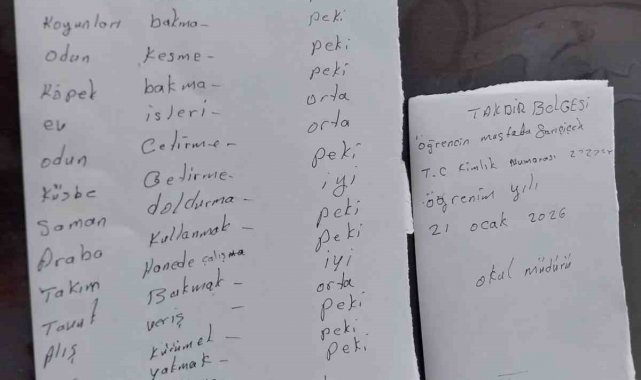 Koyunları bakma- peki
Odun Kesme- peki
Köpek bakma- peki
ev işleri- orta
odun Getirme- orta
Küsbe Getirme- peki
Saman doldurma- iyi
Araba Kullanmak- peki
Takım Hanede çalışma peki
Tavuk Bakmak- iyi
Alış veriş orta
Kürümel- peki
yakmak- peki
Peki
TAKDİR BELGESİ
Öğrencin mustafa
T.C Kimlik Numarası
Öğrenim yılı
21 ocak 2026
okul müdürü